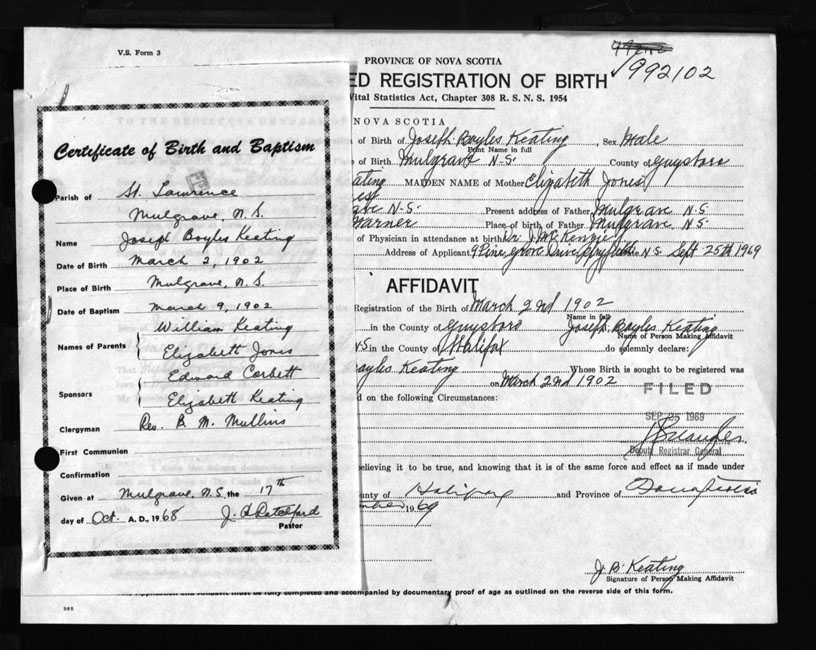 V.S. Form 3
992102
PROVINCE OF NOVA SCOTIA
ED REGISTRATION OF BIRTH
Vital Statistics Act, Chapter 308 R. S. N. S. 1954
NOVA SCOTIA
of Birth of Joseph Bayles Keating, Sex Male
Print Name in full
of Birth Mulgrave N.S. County of Guysboro
ating MAIDEN NAME of Mother Elizabeth Jones
N.S. Present address of Father Mulgrave N.S.
Warner Place of birth of Father Mulgrave N.S.
of Physician in attendance at birth Dr. J. McKenzie
Address of Applicant 9 Pine Grove Drive N.S. Sept 25th 1969
AFFIDAVIT
Registration of the Birth of March 2nd 1902
Name in full
in the County of Guysboro Joseph Bayles Keating
Name of Person Making Affidavit
N.S. in the County of Halifax do solemnly declare:
ayles Keating Whose Birth is sought to be registered was
on March 2nd 1902
FILED
d on the following Circumstances:
SEP 25 1969
Deputy Registrar General
elieving it to be true, and knowing that it is of the same force and effect as if made under
unty of Halifax and Province of Nova Scotia
mber 1969
J. B. Keating
Signature of Person Making Affidavit
Application and Affidavit must be fully completed and accompanied by documentary proof of age as outlined on the reverse side of this form.
385
Certificate of Birth and Baptism
Parish of St. Lawrence
Mulgrave, N.S.
Name Joseph Boyles Keating
Date of Birth March 2, 1902
Place of Birth Mulgrave, N.S.
Date of Baptism March 9, 1902
William Keating
Names of Parents
Elizabeth Jones
Edward Corbett
Sponsors
Elizabeth Keating
Clergyman Rev. B. M. Mullins
First Communion
Confirmation
Given at Mulgrave, N.S. the 17th
day of Oct. A.D., 1968 J. A. Ratchford
Pastor